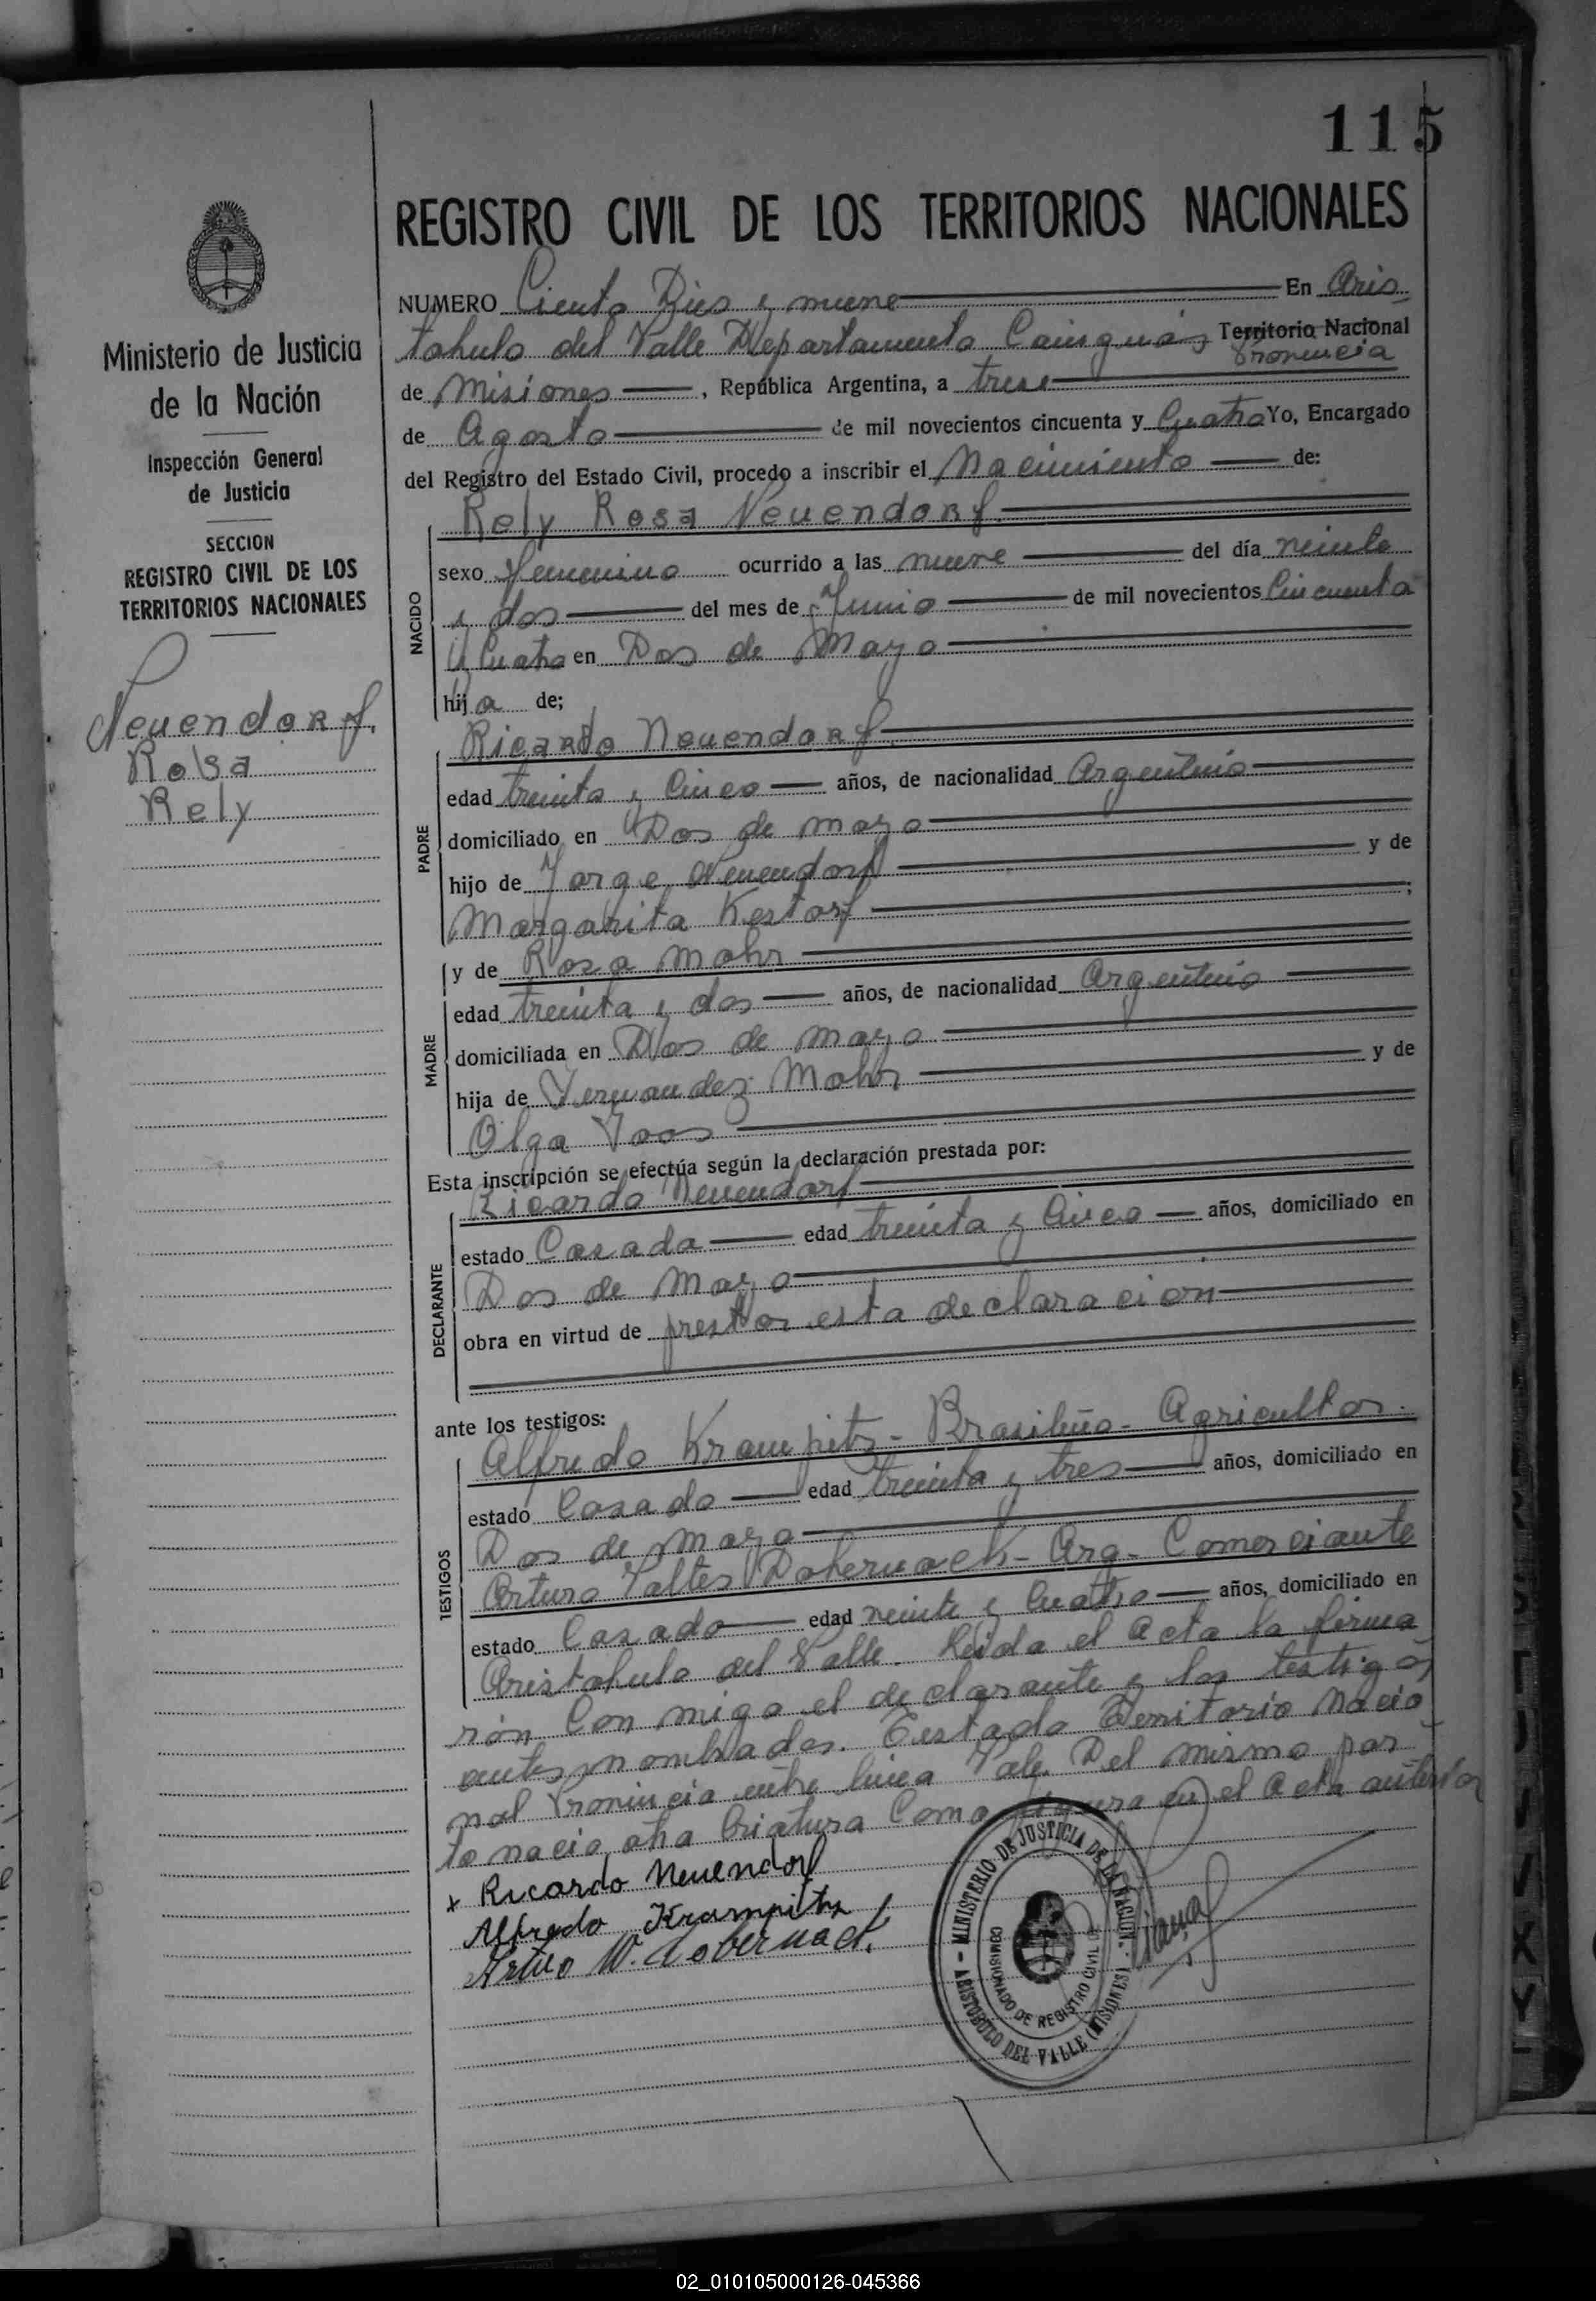 115
REGISTRO CIVIL DE LOS TERRITORIOS NACIONALES
Ministerio de Justicia
de la Nación
Inspección General
de Justicia
SECCION
REGISTRO CIVIL DE LOS
TERRITORIOS NACIONALES
Neuendorf.
Rosa
Rely
NUMERO Ciento Dies y nueve En Aris
tobulo del Valle Departamento Cainguás Territorio Nacional
Provincia
de Misiones , República Argentina, a trese
de Agosto de mil novecientos cincuenta y Cuatro Yo, Encargado
del Registro del Estado Civil, procedo a inscribir el Nacimiento de:
NACIDO
Rely Rosa Neuendorf.
sexo femenino ocurrido a las nueve del día veinte
y dos del mes de Junio de mil novecientos Cincuenta
y Cuatro en Dos de Mayo
hija de;
PADRE
Ricardo Neuendorf.
edad treinta y Cinco años, de nacionalidad Argentino
domiciliado en Dos de mayo
hijo de Jorge Neuendorf y de
Margarita Kestorf ;
MADRE
y de Rosa Mohr
edad treinta y dos años, de nacionalidad Argentino
domiciliada en Dos de mayo
hija de Fernandez Mohr y de
Olga Voos
Esta inscripción se efectúa según la declaración prestada por:
DECLARANTE
Ricardo Neuendorf
estado Casado edad treinta y Cinco años, domiciliado en
Dos de Mayo
obra en virtud de prestar esta declaración
ante los testigos:
TESTIGOS
Alfredo Krampitz - Brasileño - Agricultor.
estado Casado edad treinta y tres años, domiciliado en
Dos de mayo
Arturo Valter Dobernack - Arg - Comerciante
estado Casado edad veinte y Cuatro años, domiciliado en
Aristobulo del Valle. Leida el acta la firma
rón Con migo el declarante y los testigos
antes nombrados. Testado Territorio Nacio
nal Provincia entre linea Vale. Del mismo par
to nacio otra Criatura Como figura en el acta anterior
x Ricardo Neuendorf
Alfredo Krampitz
Arturo W. Dobernack.
- MINISTERIO DE JUSTICIA DE LA NACION -
COMISIONADO DE REGISTRO CIVIL
ARISTOBULO DEL VALLE (MISIONES)
02_010105000126-045366